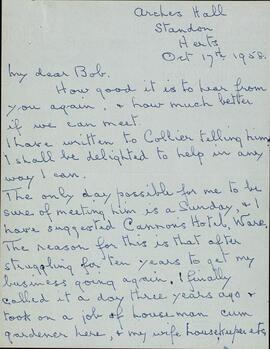 Arches Hall
Standon
Herts
Oct 17th 1958.
My dear Bob.
How good it is to hear from
you again, & how much better
if we can meet.
I have written to Collier telling him
I shall be delighted to help in any
way I can.
The only day possible for me to be
sure of meeting him is a Sunday, & I
have suggested Cannons Hotel, Ware.
The reason for this is that after
struggling for ten years to get my
business going again, I finally
called it a day three years ago &
took on a job of houseman cum
gardener here, & my wife housekeeper etc